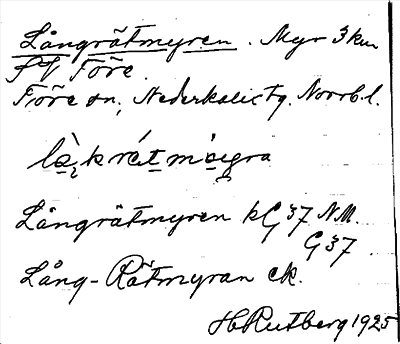 Långrätmyren. Myr 3 km
fV Före.
Före sn, Nederkalix tg. Norrb. l.
Långrätmyren kG 37 N.M.
G 37
Lång-Rätmyran ek.
H Rutberg 1925